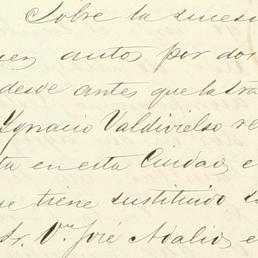 Sobre la suces
en autos por dos
desde antes que la tra
Ygnacio Valdivielso re
ta en esta Ciudad, e
ue tiene sustituido
Sr. Dn. José Adalid, e